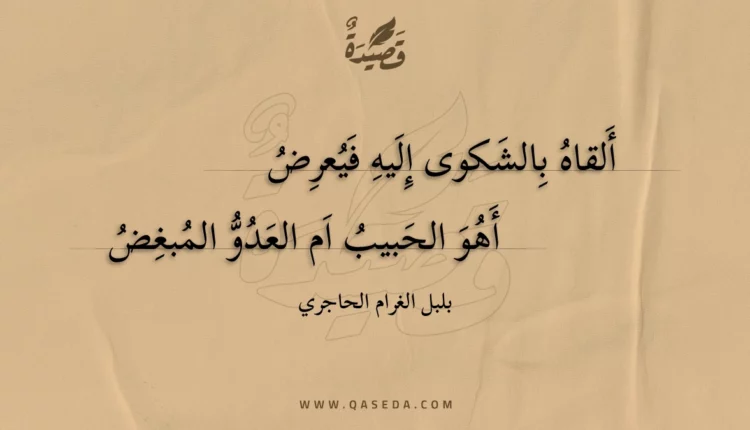 قَصِيدَةٌ
أَلقاهُ بِالشَكوى إِلَيهِ فَيُعرِضُ
أَهُوَ الحَبيبُ اَم العَدُوُّ المُبغِضُ
بلبل الغرام الحاجري
WWW.QASEDA.COM